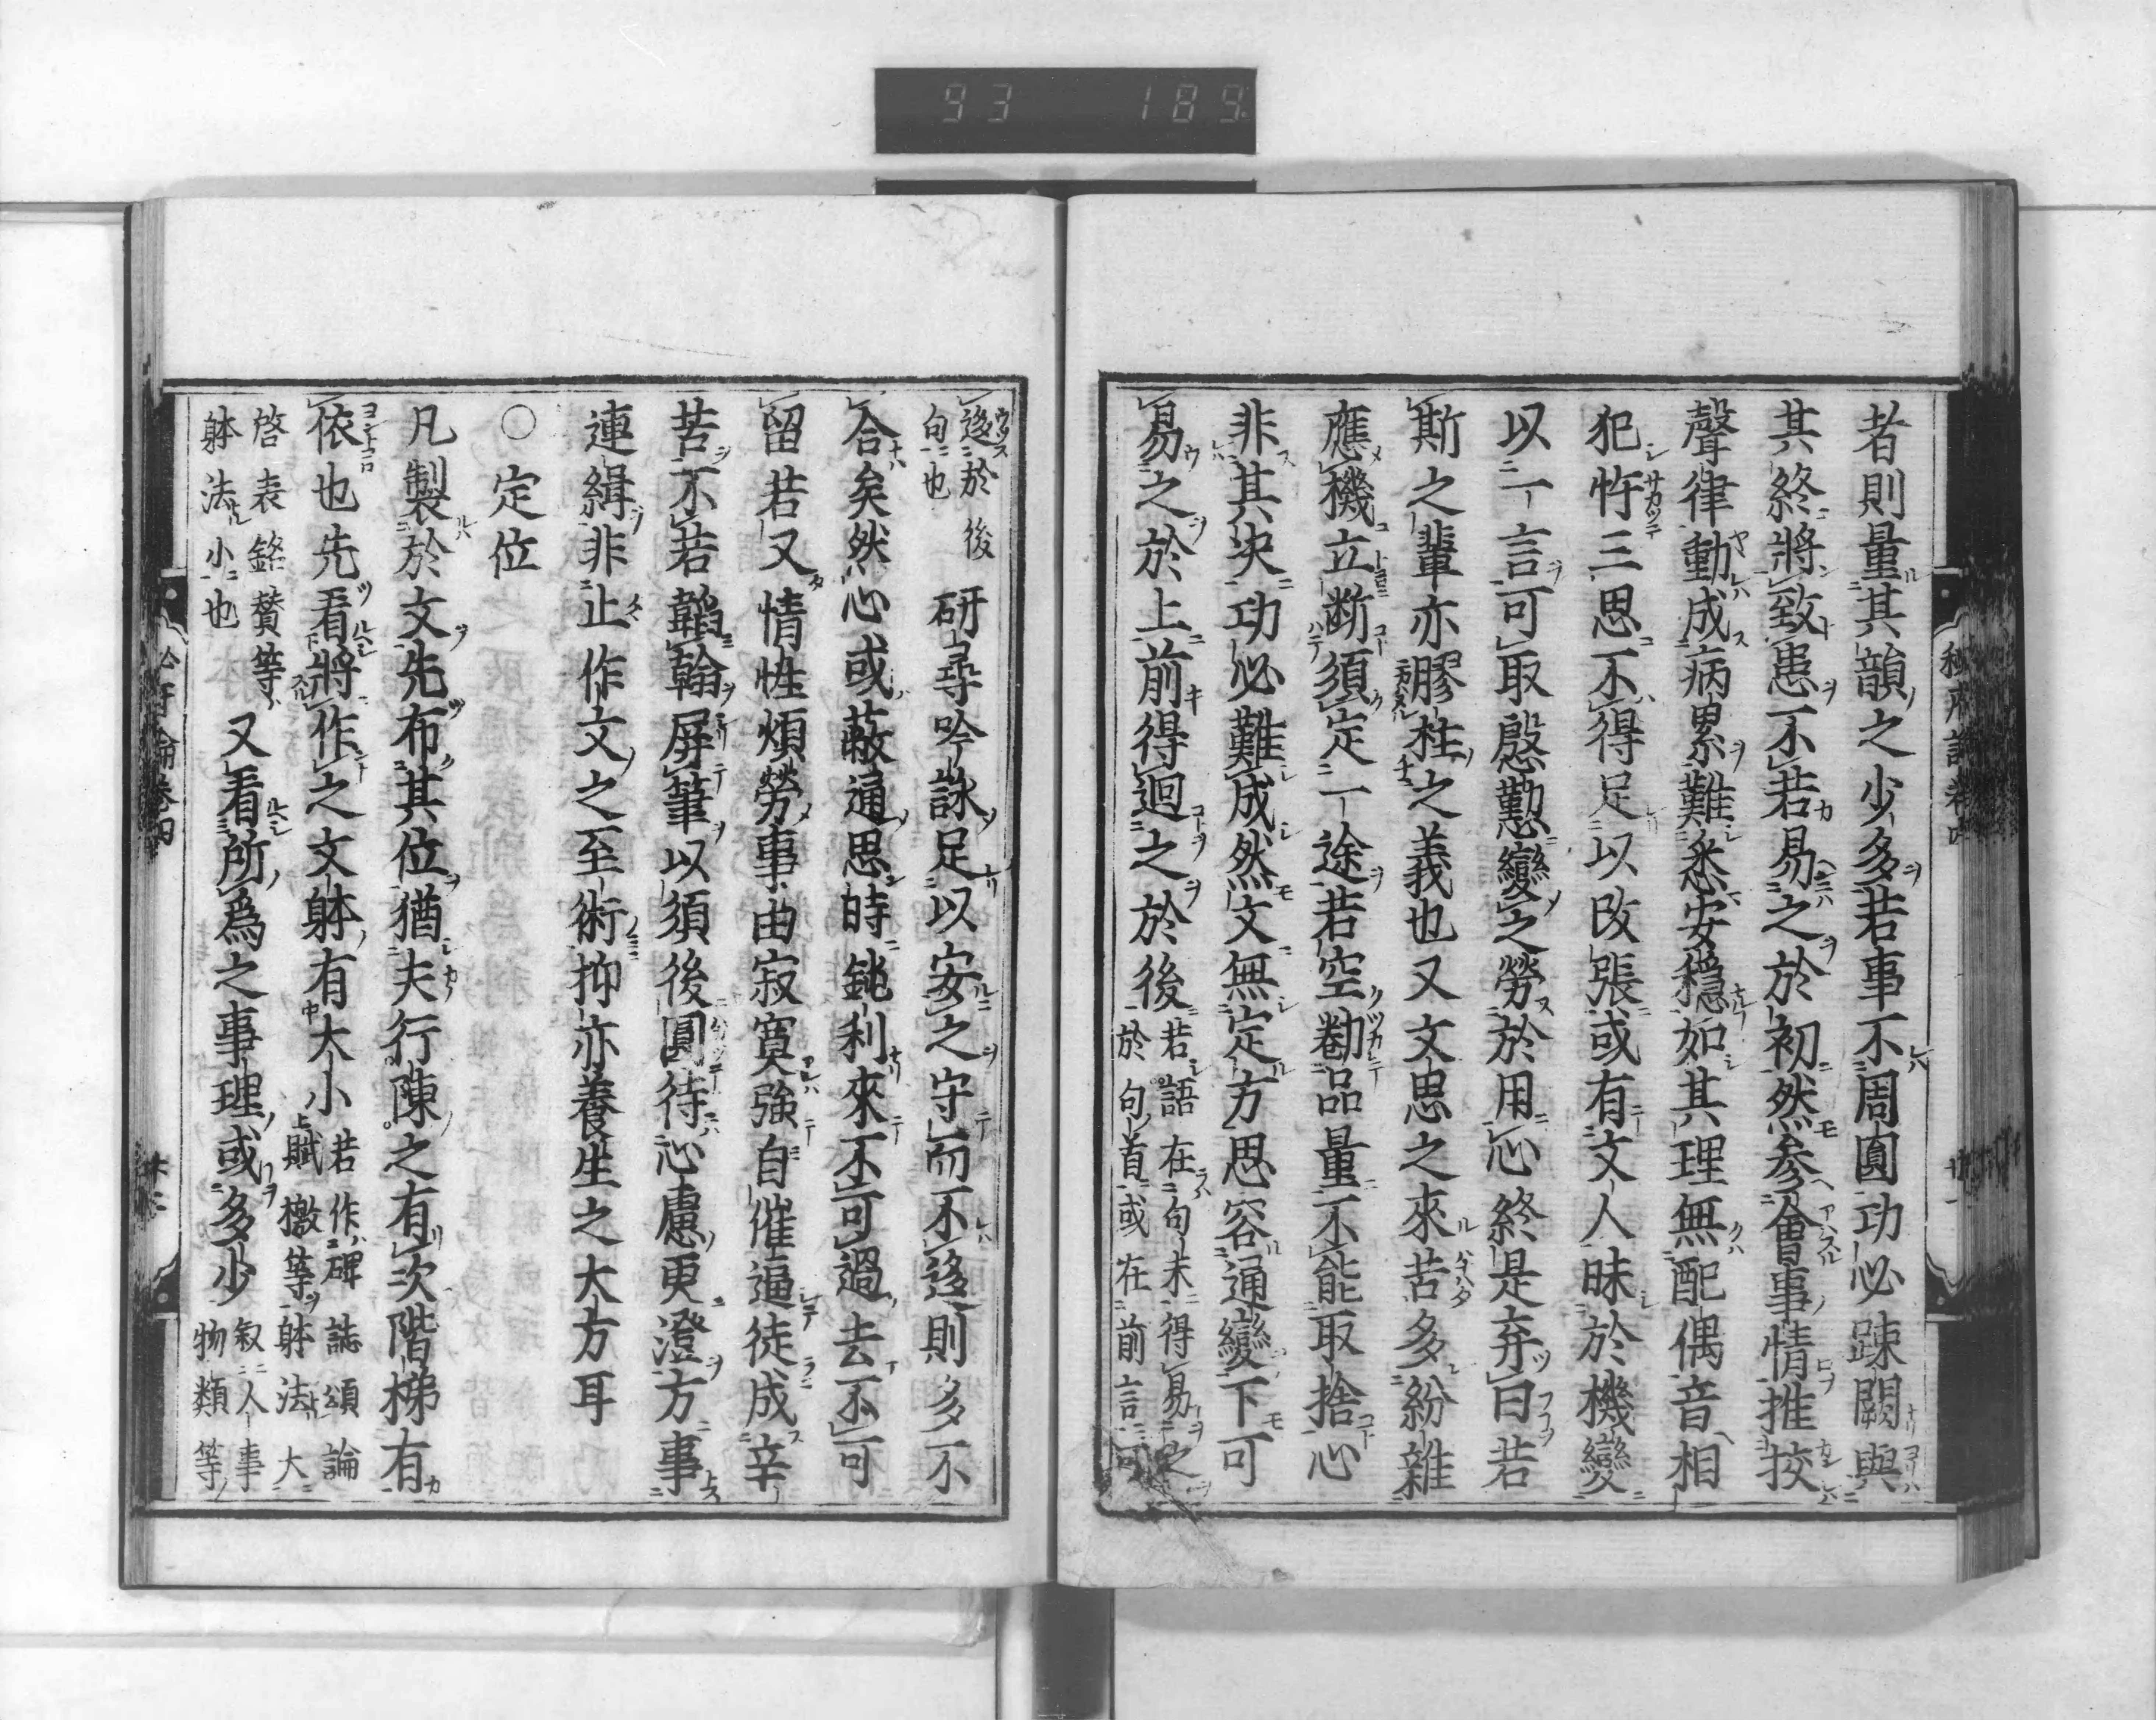 93 189
者則量其韻之少多若事不周圓功必踈闕與
其終將致患不若易之於初然参會事情推挍
聲律動成病累難悉安穩如其理無配偶音相
犯忤三思不得足以改張或有文人昧於機變
以一言可取慇懃變之勞於用心終是弃曰若
斯之輩亦膠柱之義也又文思之來苦多紛雜
應機立断須定一途若空勸品量不能取捨心
非其决功必難成然文無定方思容通變下可
易之於上前得迴之於後
若語在句末得易之
於句首或在前言可
迻於後
句也
研尋吟詠足以安之守而不迻則多不
合矣然心或蔽通思時鈍利來不可過去不可
留若又情性煩勞事由寂寞強自催逼徒成辛
苦不若韜翰屏筆以須後圓待心慮更澄方事
連緝非止作文之至術抑亦養生之大方耳
○定位
凡製於文先布其位猶夫行陳之有次階梯有
依也先看將作之文躰有大小
若作碑誌頌論
賦檄等躰法大
啓表銘賛等
躰法小也
又看所爲之事理或多少
叙人事
物類等